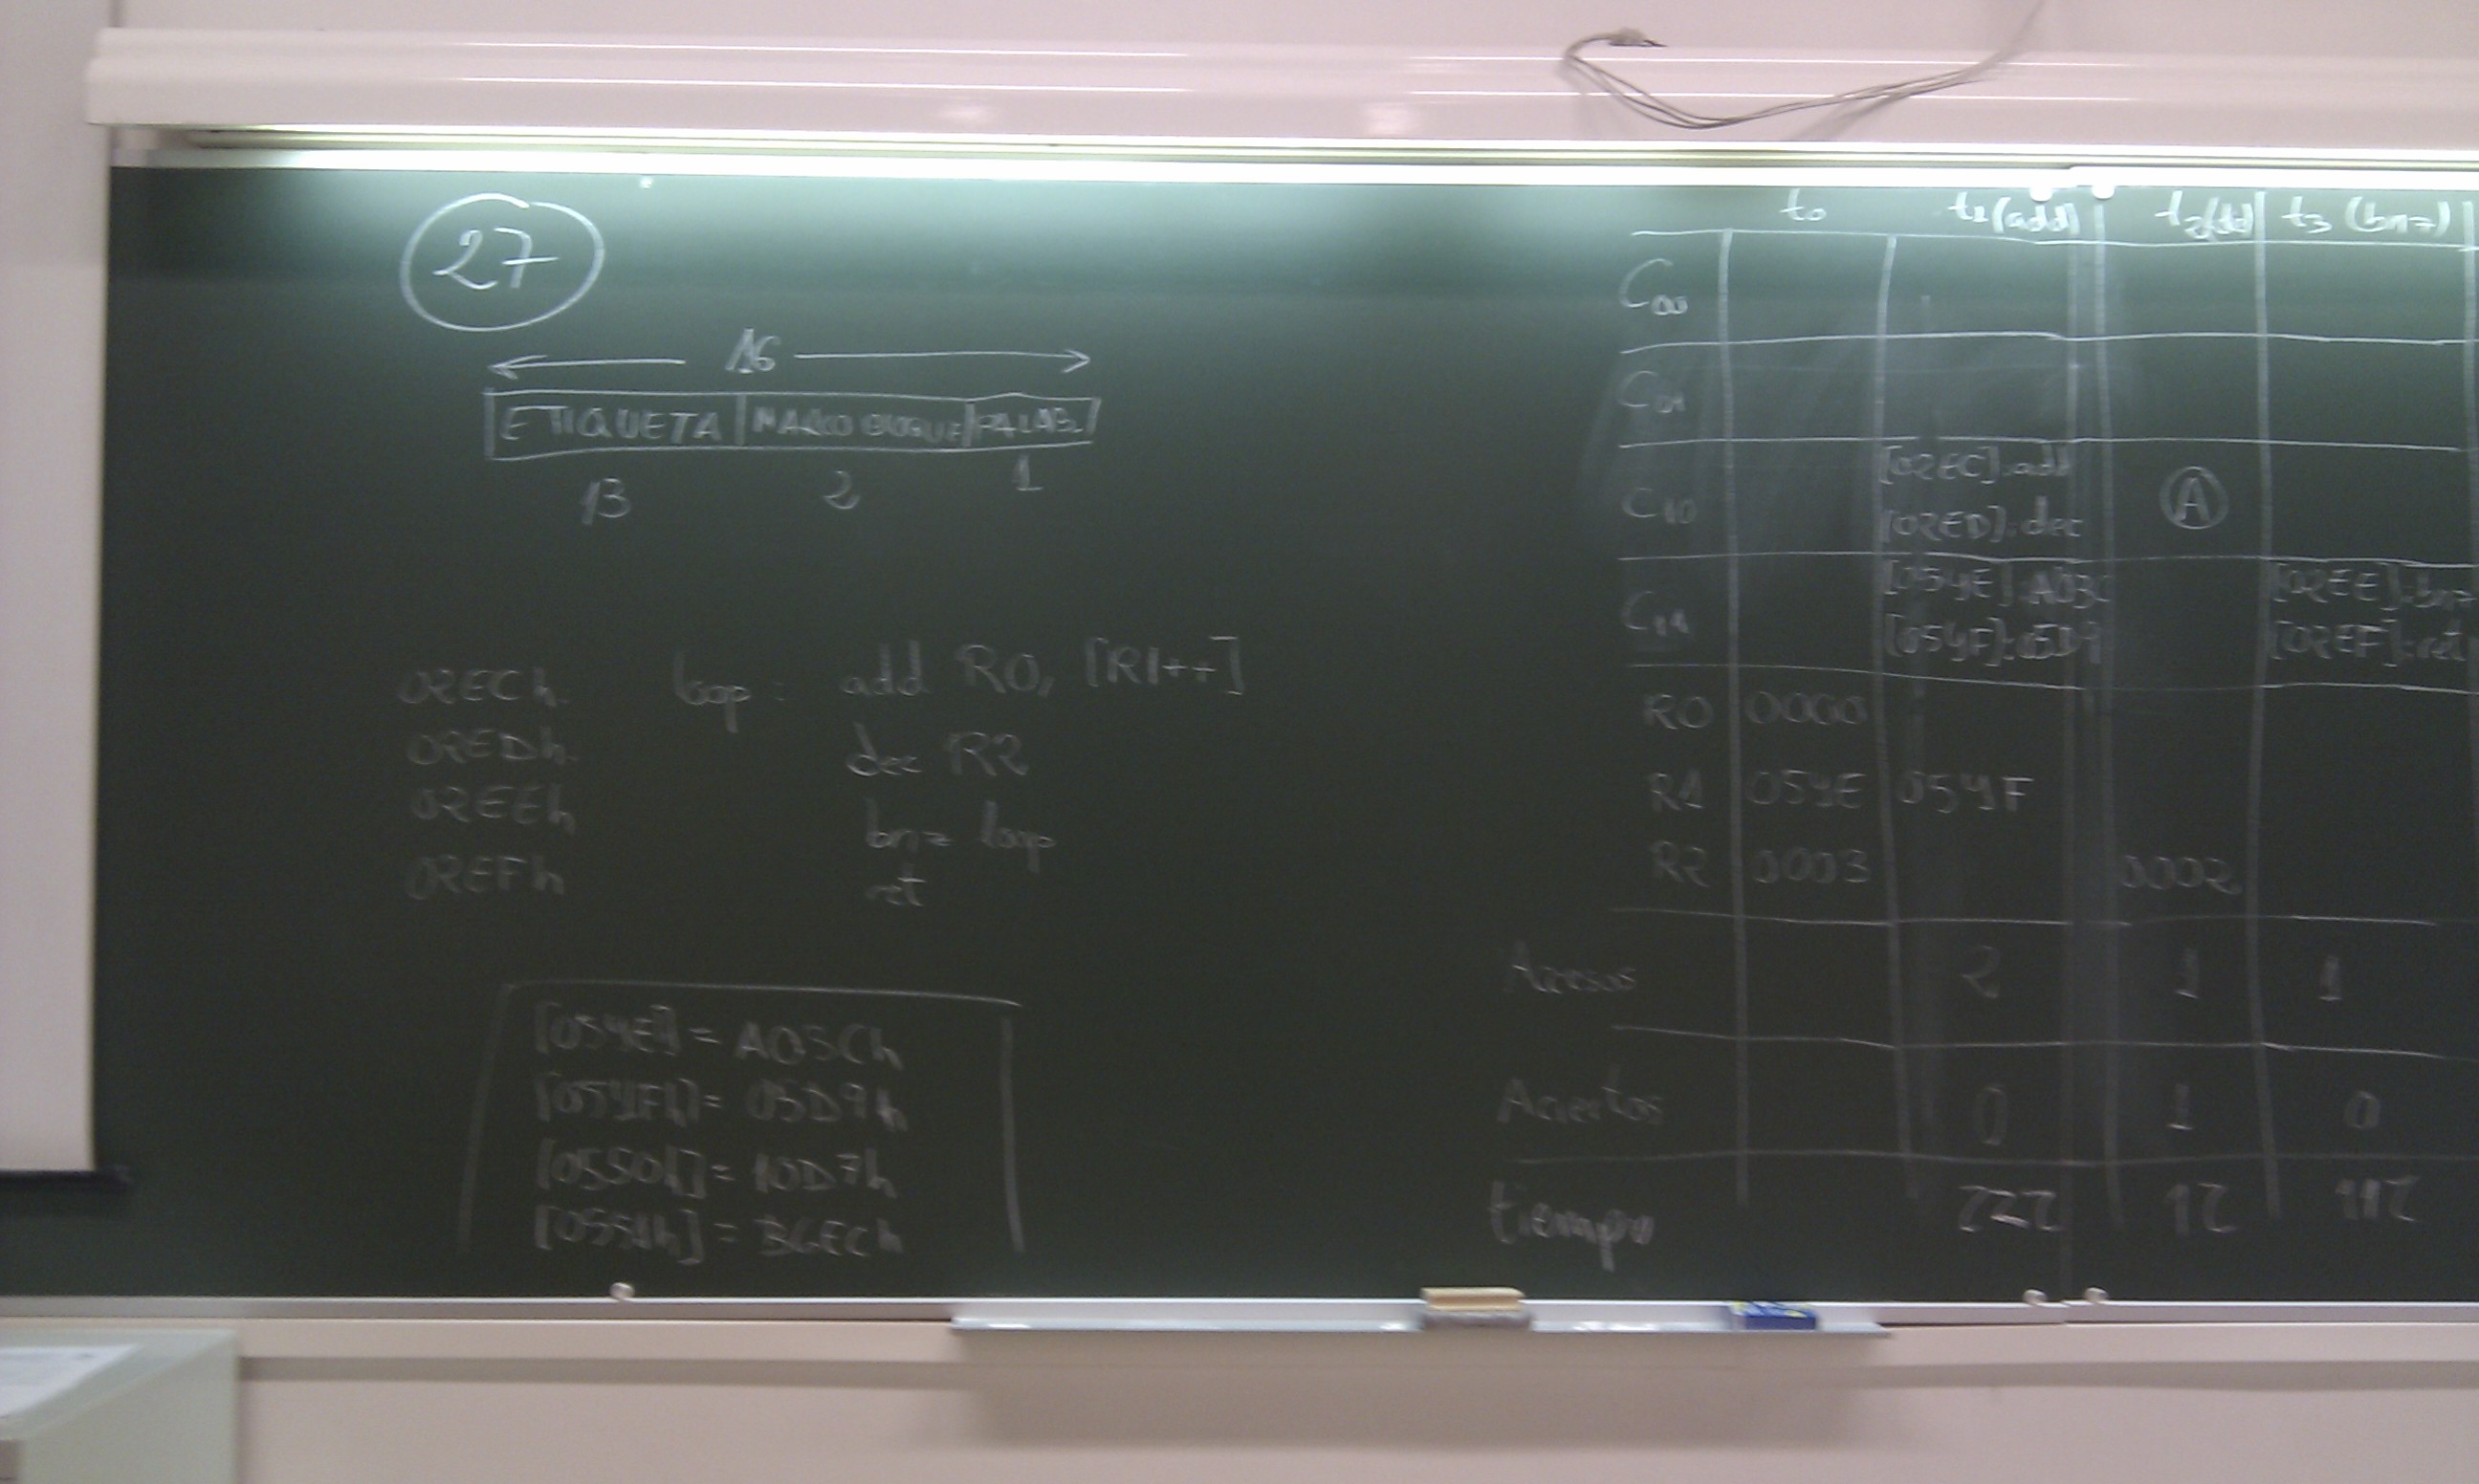 27
16
ETIQUETA MARCO BLOQUE PALAB.
13 2 1
02ECh loop: add R0, [R1++]
02EDh dec R2
02EEh bnz loop
02EFh ret
[054E] = A03Ch
[054Fh] = 05D9h
[0550h] = 10D7h
[0551h] = B6ECh
t0 t1(add) t2(dec) t3 (bnz)
C00
C01
C10 [02EC]:add A
[02ED]:dec
C11 [054E]:A03C [02EE]:bnz
[054F]:05D9 [02EF]:ret
R0 0000
R1 054E 054F
R2 0003 0002
Accesos 2 1 1
Aciertos 0 1 0
tiempo 22τ 1τ 11τ